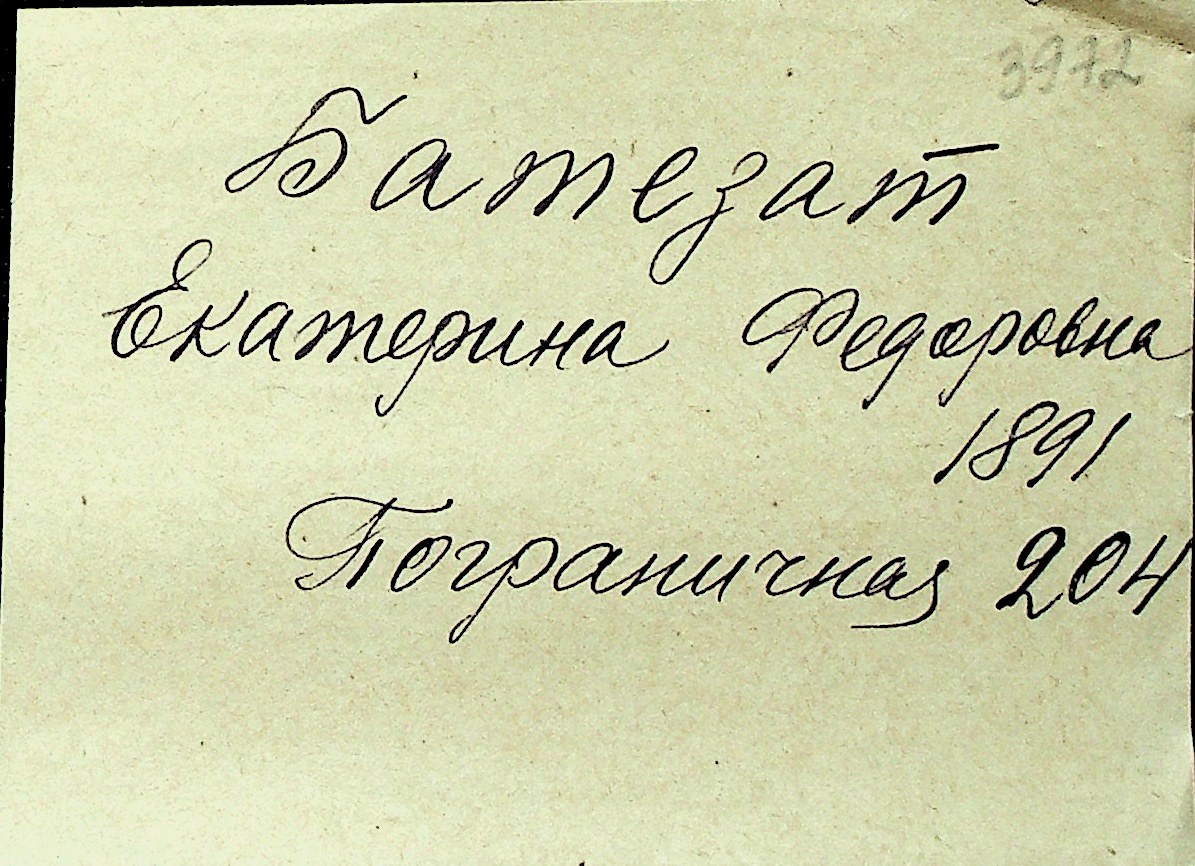 3972
Батезат
Екатерина Федоровна
1891
Пограничная 204